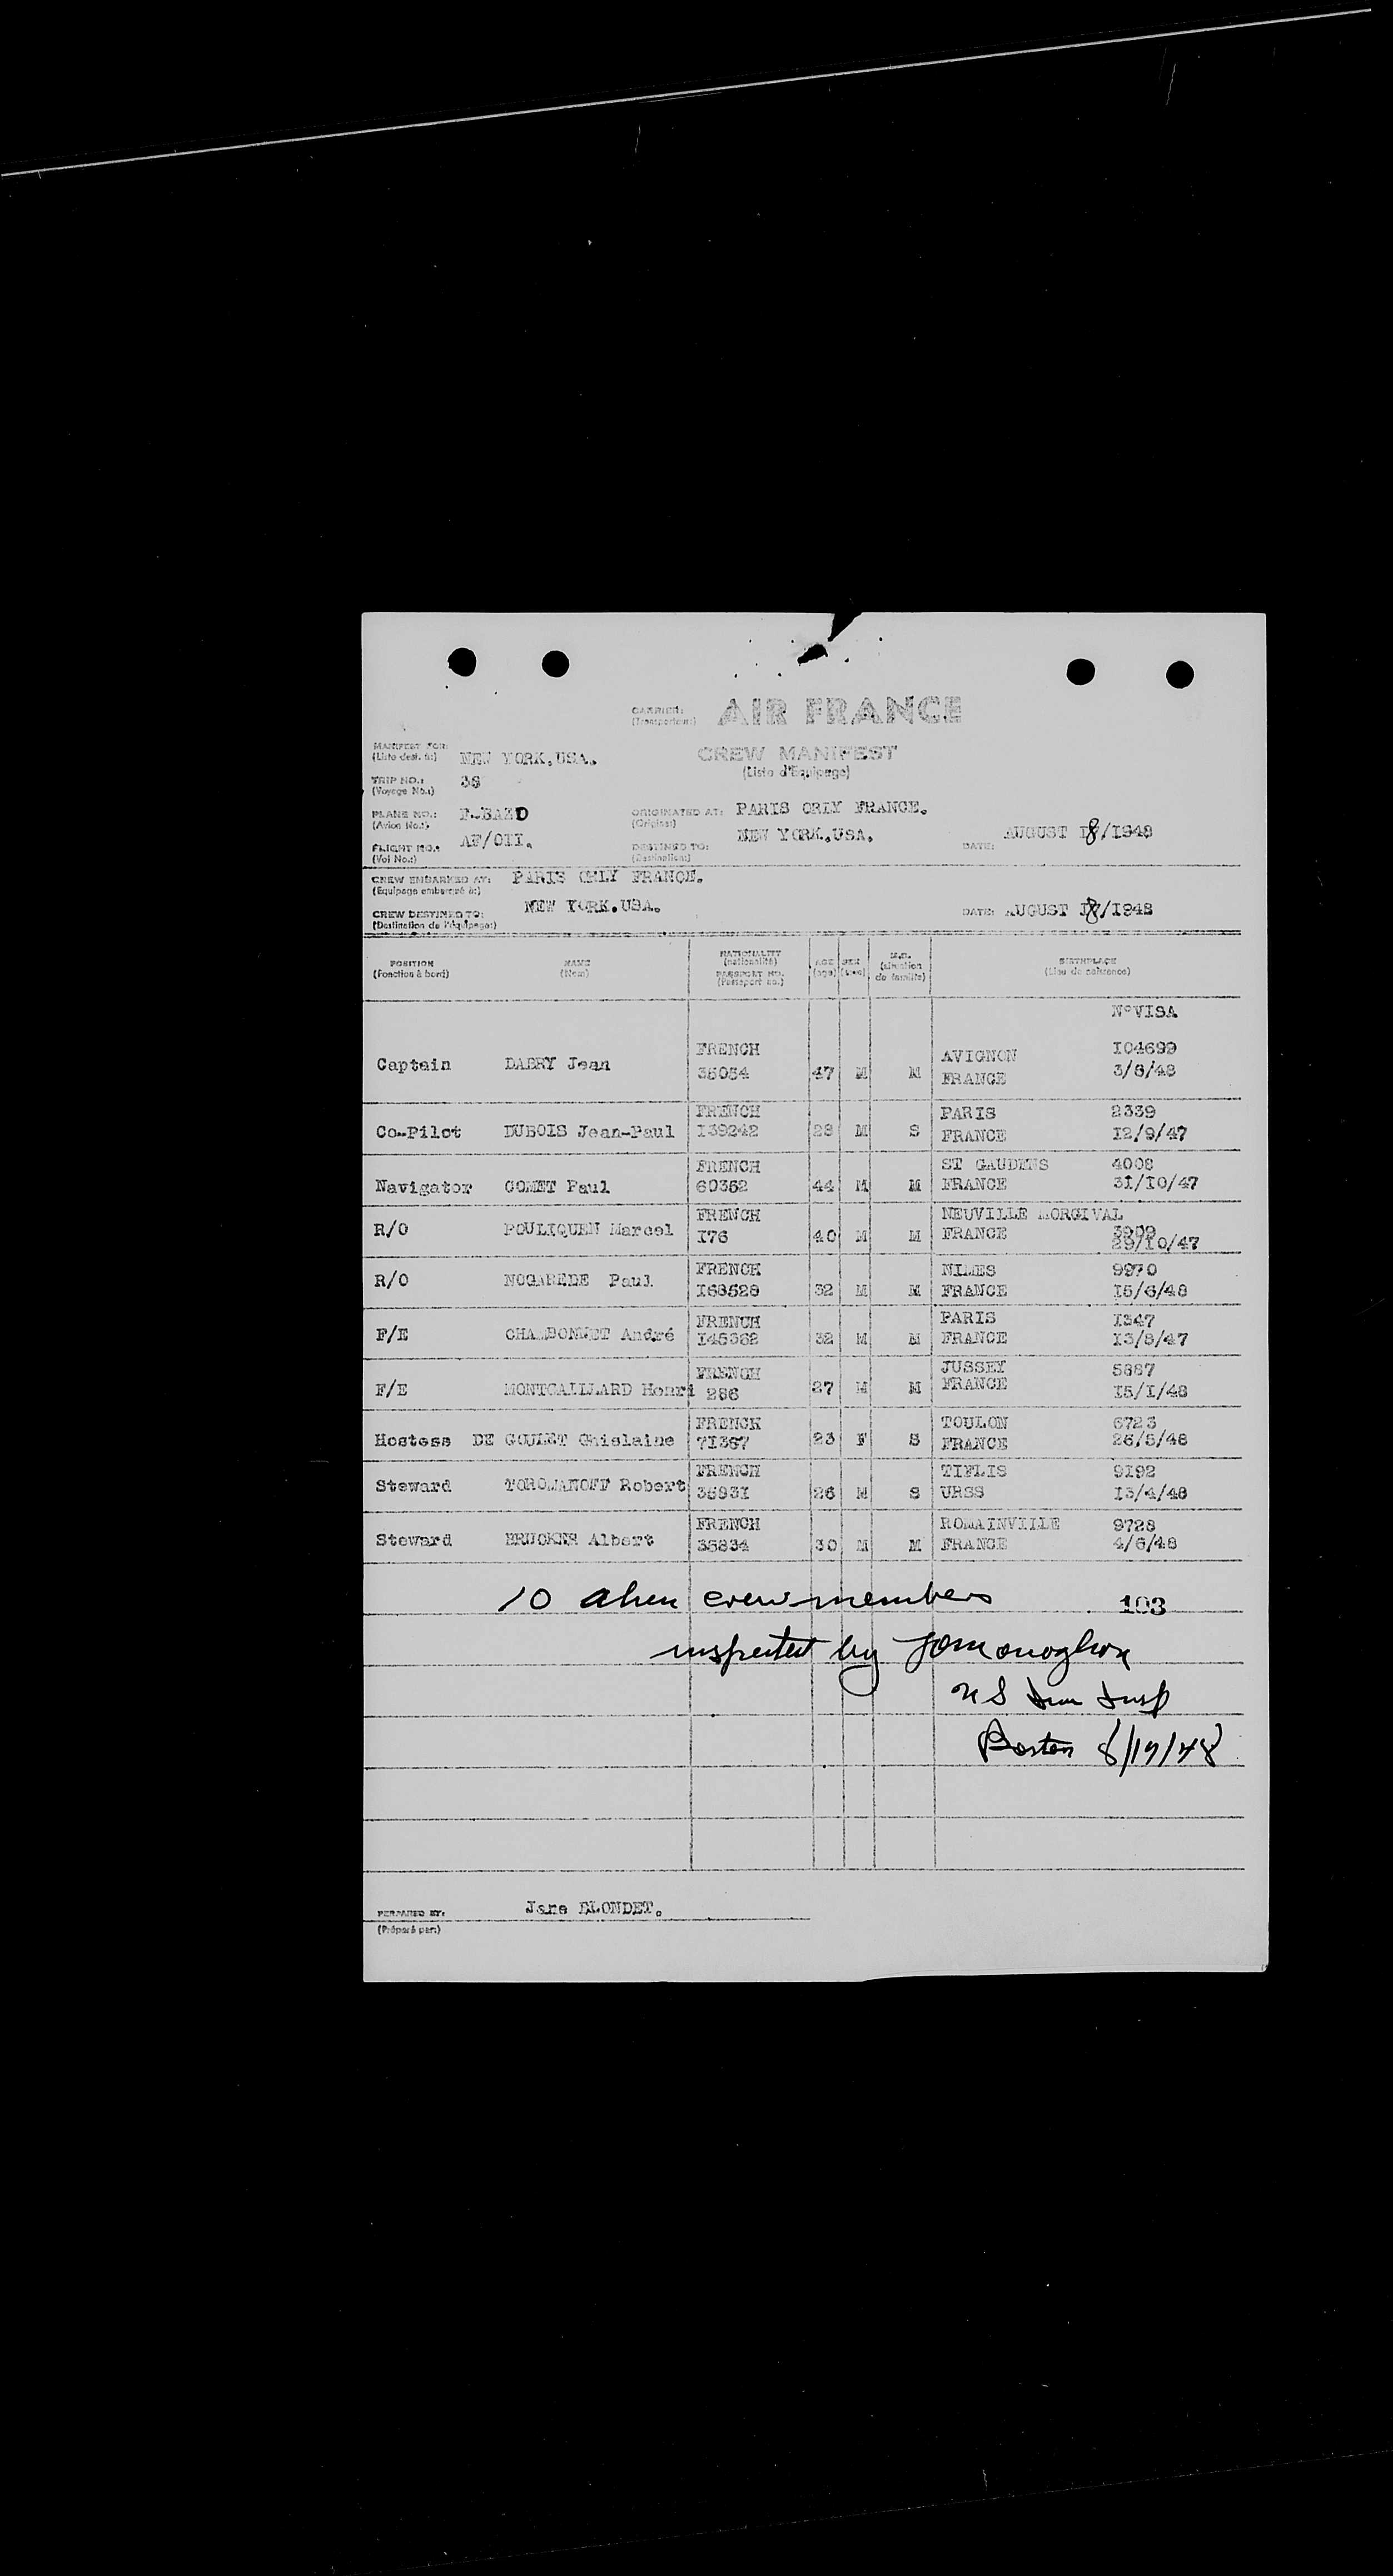 CARRIER: AIR FRANCE
(Transporteur:)
MANIFEST FOR: NEW YORK,USA.
(Liste dest. à:)
CREW MANIFEST
(Liste d'Equipage)
TRIP NO.: 38
(Voyage No.:)
PLANE NO.: F-BAZD
(Avion No.:)
ORIGINATED AT: PARIS ORLY FRANCE.
(Origine:)
FLIGHT NO.: AF/OII.
(Vol No.:)
DESTINED TO: NEW YORK,USA.
(Destination:)
DATE: AUGUST I8/I948
CREW EMBARKED AT: PARIS ORLY FRANCE.
(Equipage embarqué à:)
CREW DESTINED TO: NEW YORK.USA.
(Destination de l'équipage:)
DATE: AUGUST I8/I948
POSITION
(Fonction à bord)
NAME
(Nom)
NATIONALITY
(nationalité)
PASSPORT NO.
(Passeport no.)
AGE
(age)
SEX
(sexe)
(situation
de famille)
BIRTHPLACE
(Lieu de naissance)
N°VISA
Captain DABRY Jean FRENCH 35054 47 M M AVIGNON FRANCE I04699 3/8/48
Co-Pilot DUBOIS Jean-Paul FRENCH I39242 28 M S PARIS FRANCE 2339 I2/9/47
Navigator COMET Paul FRENCH 60362 44 M M ST GAUDENS FRANCE 4008 3I/I0/47
R/O POULIQUEN Marcel FRENCH I76 40 M M NEUVILLE FRANCE 3909 29/I0/47
R/O NOGAREDE Paul FRENCH I68528 32 M M NIMES FRANCE 9970 I5/6/48
F/E CHAMBONNET André FRENCH I45362 32 M M PARIS FRANCE I347 I3/8/47
F/E MONTCAILLARD Henri FRENCH 286 27 M M JUSSEY FRANCE 5887 I5/I/48
Hostess DE GOULET Ghislaine FRENCH 7I367 23 F S TOULON FRANCE 6723 26/5/48
Steward TOROMANOFF Robert FRENCH 3583I 26 M S TIFLIS URSS 9I92 I3/4/48
Steward BRUCKER Albert FRENCH 35834 30 M M ROMAINVILLE FRANCE 9728 4/6/48
10 alien crew members 103
inspected by
US Imm Insp
Boston 8/19/48
PREPARED BY: Jane BLONDET.
(Préparé par:)